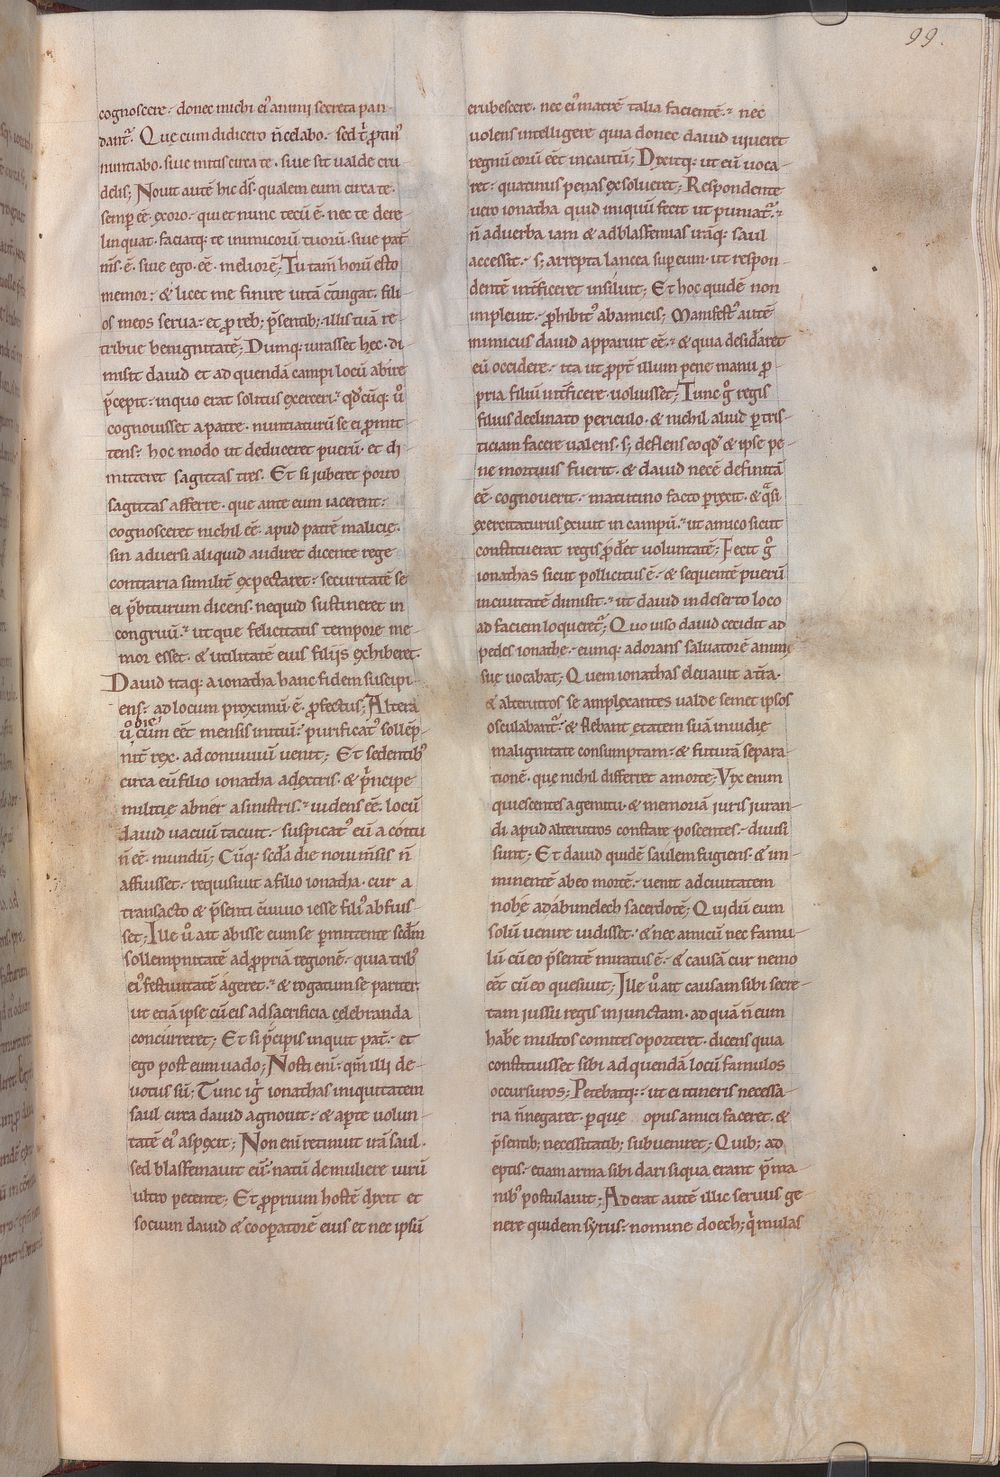 99.
cognoscere· donec michi ei᷒ animi secreta pan-
dant᷑. Quę cum didicero n̄ celabo· sed t̄ protin᷒
nuntiabo· siue mitis circa te· siue sit ualde cru-
delis; Nouit autē hic ds̄· qualem eum circa te·
semp eē exoro· qui et nunc tecū ē· nec te dere-
linquat· faciatq: te inimicorū tuorū· siue pat᷑
ms̄ ē· siue ego· eē meliorē; Tu tam̄ horū esto
memor: & licet me finire uitā c̄tingat· fili-
os meos serua· et p reb; p̄sentib; illis tuā re-
tribue benignitatē; Dumq: iurasset hec· di-
misit dauid et ad quendā campi locū abire
p̄cepit· in quo erat solitus exerceri· qd̓cūq: u᷒
cognouisset a patre· nuntiaturū se ei p̄mit-
tens: hoc modo ut deduceret puerū· et di-
mitteret sagittas tres. Et si iuberet porro
sagittas afferre· que ante eum iacerent:
cognosceret nichil eē apud patrē malicię·
sin aduersi aliquid audiret dicente rege
contraria similit̄ expectaret: securitatē se
ei p̄biturum dicens· nequid sustineret in
congruū· ut que felicitatis tempore me-
mor esset· & utilitatē eius filijs exhiberet·
Dauid itaq: a ionatha hanc fidem suscipi-
ens: ad locum proximū ē pfectus; Altera
u᷒ die cum eēt mensis initiū: purificat᷒ sollēp-
nit̄ rex· ad conuiuiū uenit; Et sedentib᷒
circa eū filio ionatha a dextris· & p̄ncipe
militię abner a sinistris· uidens eē locū
dauid uacuū tacuit· suspicat᷒ eū a coitu
n̄ eē mundū; Cūq: sedā die nouim̄sis n̄
affuisset· requisiuit a filio ionatha· cur a
transacto & p̄senti c̄uiuio iesse fili᷒ abfuis-
set; Ille u᷒ ait abisse eum se pmittente sedm̄
sollempnitatē ad ppriā regionē· quia trib᷒
ei᷒ festiuitatē ageret· & rogatum se pariter
ut etiā ipse cū eis ad sacrificia celebranda
concurreret; Et si p̄cipis inquit pat᷑· et
ego post eum uado; Nosti enī· qm̄ illi de-
uotus sū; Tunc ig̓ ionathas iniquitatem
saul circa dauid agnouit· & apte uolun-
tatē ei᷒ aspexit; Non enī retinuit irā saul·
sed blasfemauit eū· natū de muliere uirū
ultro petente; Et proprium hostē dixit et
socium dauid & cooperatorē eius et nec ipsū
erubescere· nec ei᷒ matrē talia facientē· nec
uolens intelligere quia donec dauid uiueret
regnū eorū eēt incautū; Dixitq: ut eū uoca-
ret· quatinus penas exsolueret; Respondente
uero ionatha quid iniquū fecit ut puniat᷑·
n̄ ad uerba iam & ad blasfemias irāq: saul
accessit· s; arrepta lancea sup eum· ut respon-
dentē intficeret insiluit; Et hoc quidē non
impleuit· phibit᷒ ab amicis; Manifest᷒ autē
inimicus dauid apparuit eē· & quia desid̄aret
eū occidere· ita ut ppt̄ illum pene manu p-
pria filiū intficere uoluisset; Tunc g̊ regis
filius declinato periculo· & nichil aliud p tris-
ticiam facere ualens· s; deflens eo qd̓ & ipse pe-
ne mortuus fuerit· & dauid necē definitā
eē cognouerit· matutino facto pexit· & q̄si
exercitaturus exiuit in campū· ut amico sicut
constituerat regis p̄d̄et uoluntatē; Fecit g̊
ionathas sicut pollicitus ē· & sequentē puerū
in ciuitatē dimisit· ut dauid in deserto loco
ad faciem loqueret᷑; Quo uiso dauid cecidit ad
pedes ionathe· eumq: adorans saluatorē animę
sue uocabat; Quem ionathas eleuauit a tr̄a·
& alterutros se amplexantes ualde semet ipsos
osculabant᷑· & flebant etatem suā inuidię
malignitate consumptam· & futurā separa-
tionē· que nichil differret a morte; Vix enim
quiescentes a gemitu· & memoriā iuris iuran-
di apud alterutros constare poscentes· diuisi
sunt; Et dauid quidē saulem fugiens· & im-
minentē ab eo mortē· uenit ad ciuitatem
nobe· ad abimelech sacerdotē; Qui dū eum
solū uenire uidisset· & nec amicū nec famu-
lū cū eo p̄sentē miratus ē· & causā cur nemo
eēt cū eo quesiuit; Ille u᷒ ait causam sibi secre-
tam iussu regis iniunctam· ad quā n̄ eum
hab̄e multos comites oporteret· dicens quia
constituisset sibi ad quendā locū famulos
occursuros; Petebatq: ut ei itineris necessa-
ria n̄ negaret· p que opus amici faceret· &
p̄sentib; necessitatib; subueniret; Quib; ad
eptis· etiam arma sibi dari siqua erant p̄ ma-
nib᷒ postulauit; Aderat autē illic seruus ge-
nere quidem syrus· nomine doech; q̇ mulas